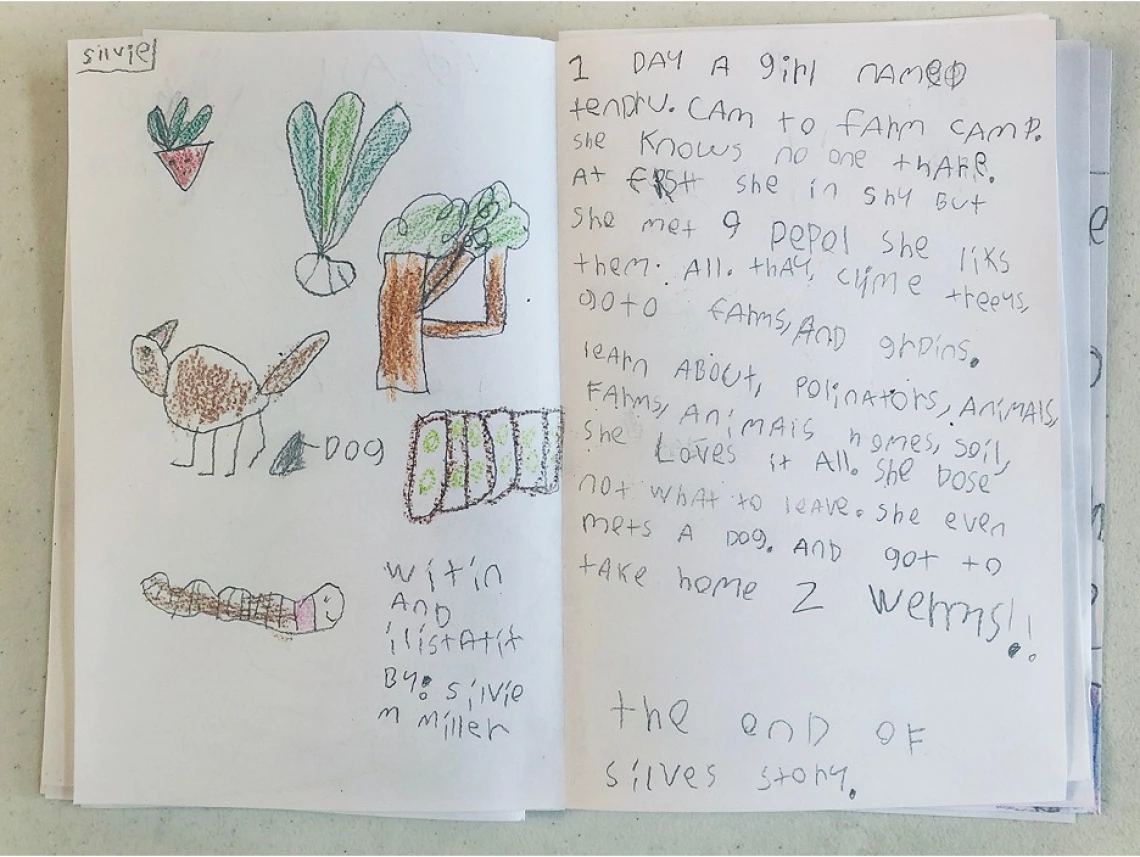 silvie
DOG
witin
AND
ilistAtit
By: silvie
m miller
1 DAY A girl NAMED
tenDru. CAm to fArm CAmp.
she knows no one thare.
At first she in shy But
she met 9 pepol she liks
them. All. thAy, clyme treeys,
goto fArms, AND grDins.
leArn ABOut, polinAtors, AnimAls,
FArms, AnimAls homes, soil,
she Loves it All. she Dose
not whAt to leAve. she even
mets A DOG. AND got to
tAke home 2 werms!!
the enD of
silves story.